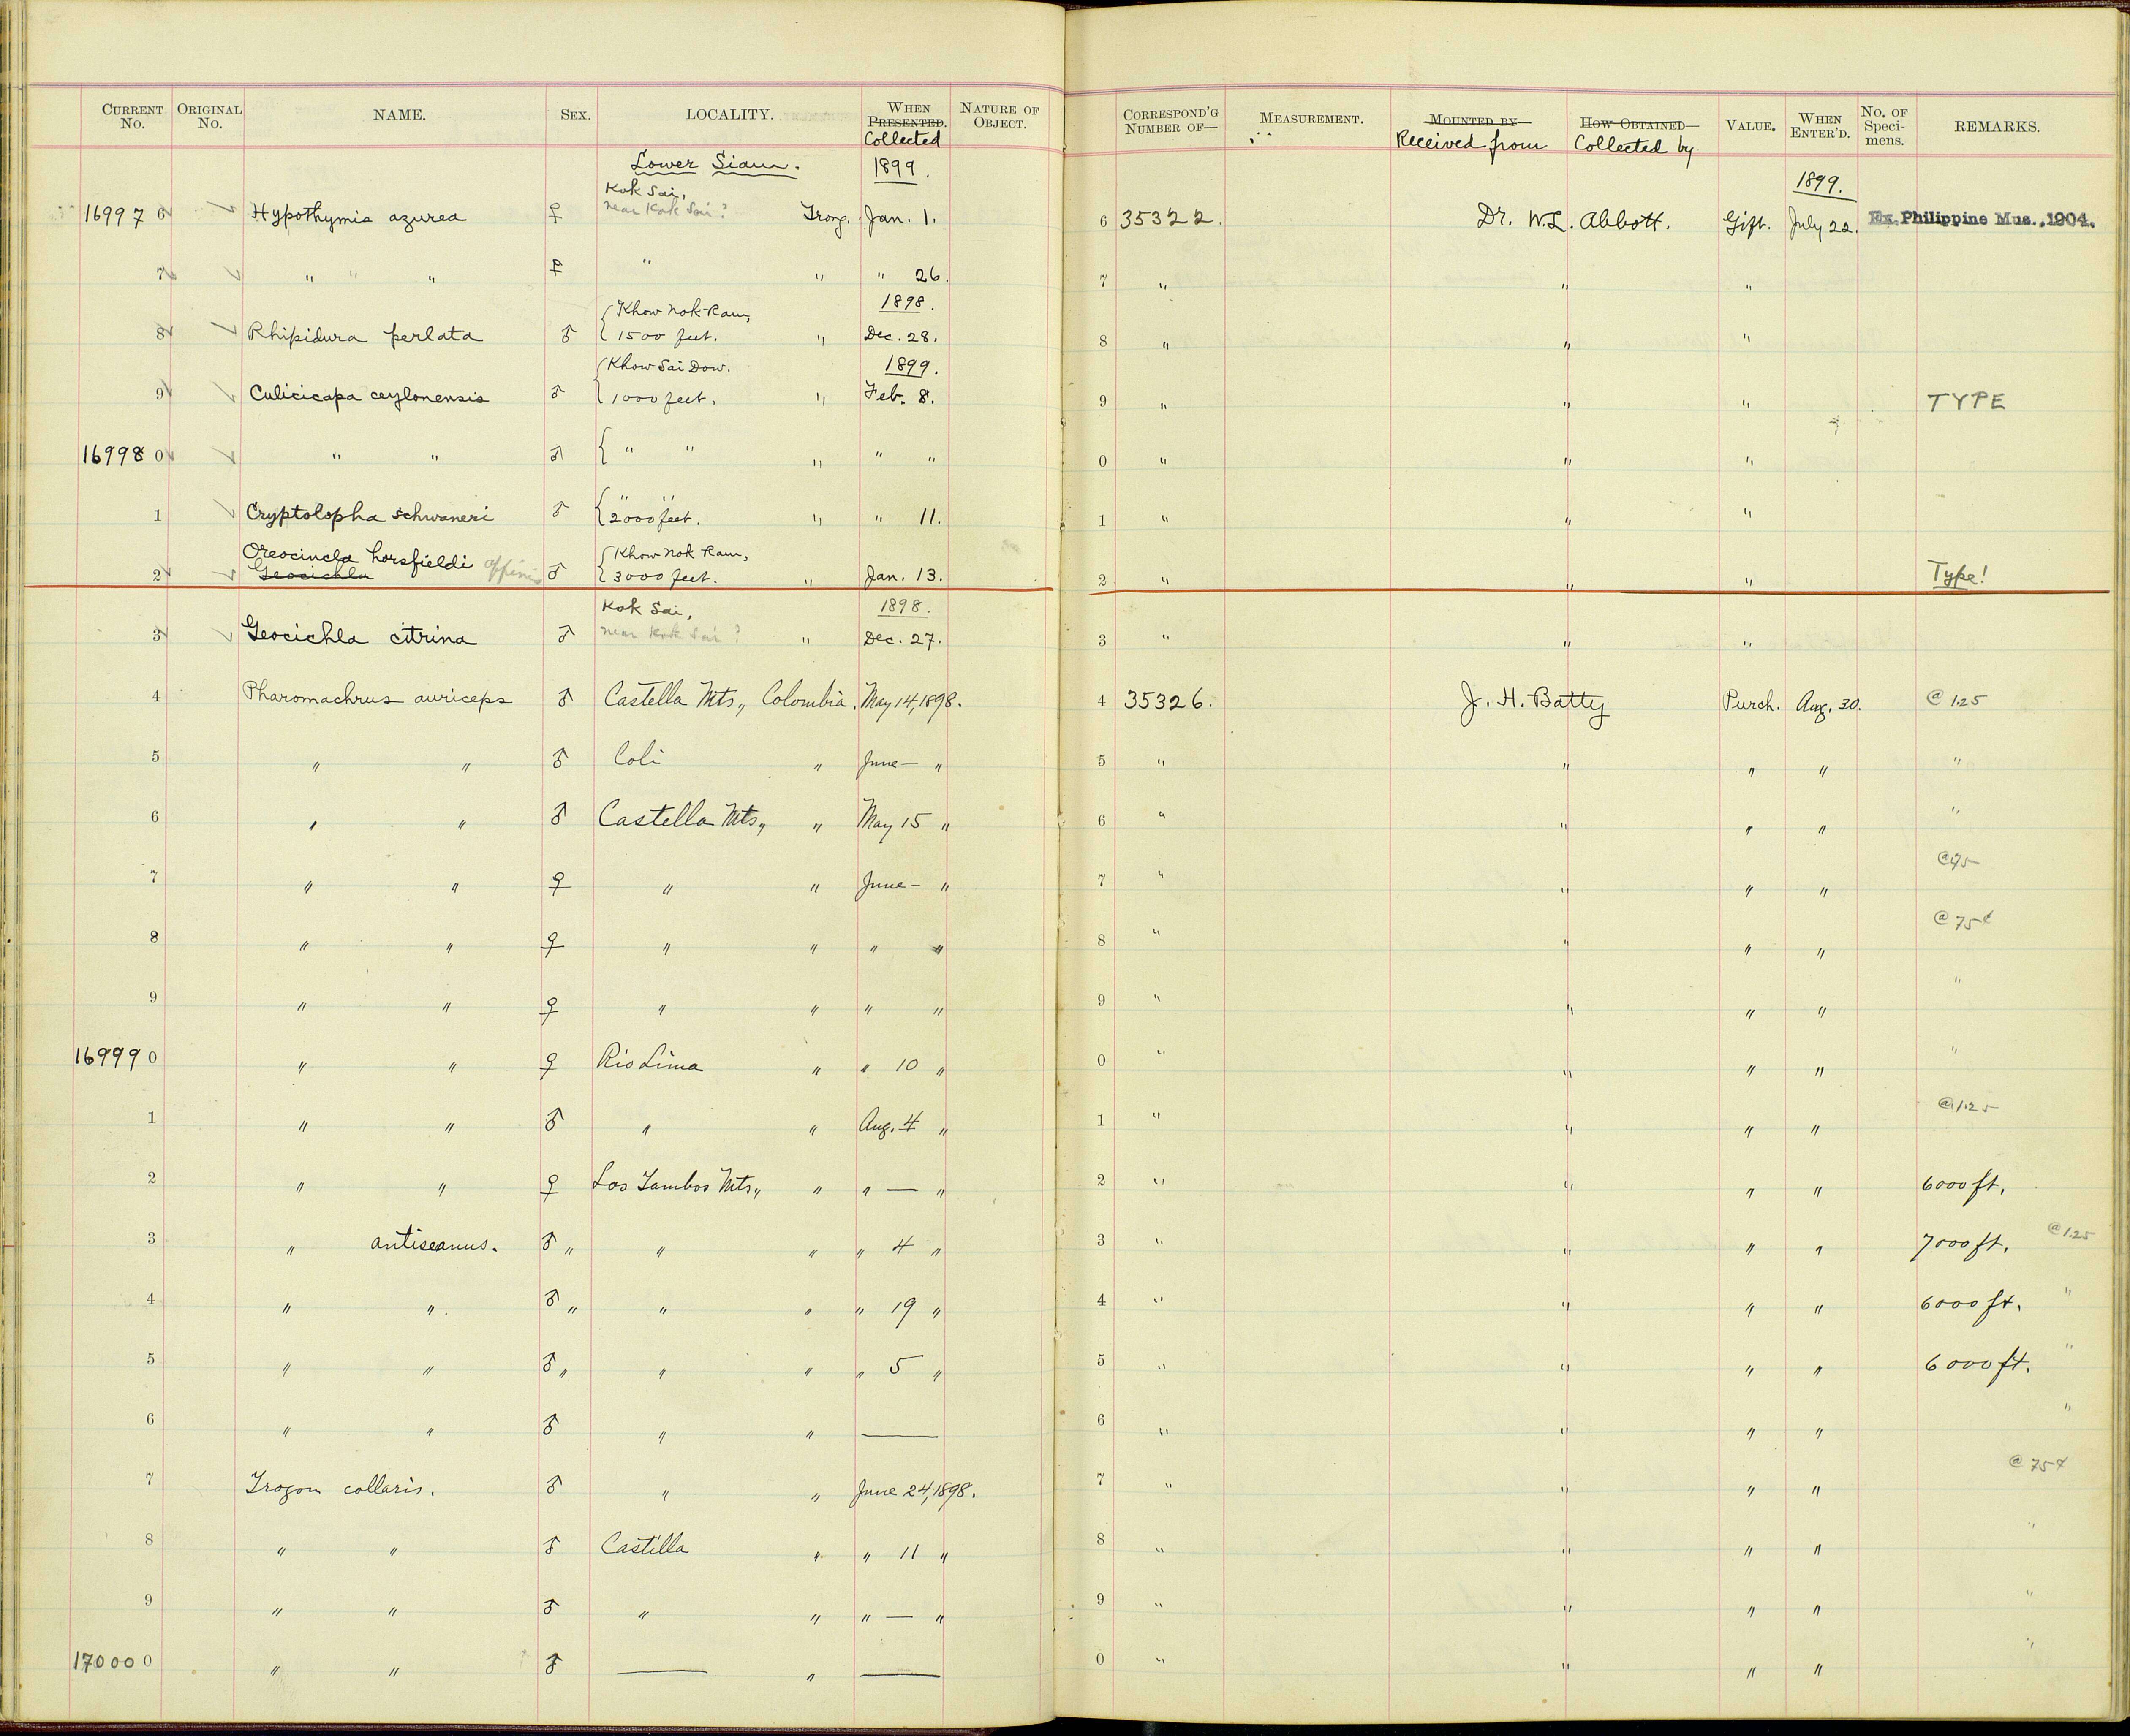 CURRENT No. ORIGINAL No. NAME. SEX. LOCALITY. WHEN PRESENTED. Collected NATURE OF OBJECT. CORRESPOND'G NUMBER OF— MEASUREMENT. MOUNTED BY— Received from HOW OBTAINED— Collected by VALUE. WHEN ENTER'D. No. OF Speci- mens. REMARKS.
Lower Siam. 1899. 1899.
Kok Sai,
near Kok Sai?
16997 6 Hypothymis azurea ♀ Trong. Jan. 1. 6 35322. Dr. W.L. Abbott. Gift. July 22. Ex. Philippine Mus., 1904.
7 " " " ♀ " " " 26. 7 " " "
Khow Nok Ram, 1898.
8 Rhipidura perlata ♂ 1500 feet. " Dec. 28. 8 " " "
Khow Sai Dow. 1899.
9 Culicicapa ceylonensis ♂ 1000 feet. " Feb. 8. 9 " " " TYPE
16998 0 " " ♂ " " " " " 0 " " "
" "
1 Cryptolopha schwaneri ♂ 2000 feet. " " 11. 1 " " "
Oreocincla horsfieldi affinis Khow Nok Ram,
2 Geocichla ♂ 3000 feet. " Jan. 13. 2 " " " Type!
Kok Sai, 1898.
3 Geocichla citrina ♂ near Kok Sai? " Dec. 27. 3 " " "
4 Pharomachrus auriceps ♂ Castella Mts., Colombia. May 14, 1898. 4 35326. J. H. Batty Purch. Aug. 30. @ 1.25
5 " " ♂ Coli " June — " 5 " " " " "
6 " " ♂ Castella Mts., " May 15 " 6 " " " " "
7 " " ♀ " " June — " 7 " " " " @75
8 " " ♀ " " " " 8 " " " " @ 75¢
9 " " ♀ " " " " 9 " " " " "
16999 0 " " ♀ Rio Lima " " 10 " 0 " " " " "
1 " " ♂ " " Aug. 4 " 1 " " " " @ 1.25
2 " " ♀ Los Tambos Mts., " " — " 2 " " " " 6000 ft.
3 " antiseanus. ♂ " " " " 4 " 3 " " " " 7000 ft. @ 1.25
4 " ". ♂ " " " " 19 " 4 " " " " 6000 ft. "
5 " " ♂ " " " " 5 " 5 " " " " 6000 ft. "
6 " " ♂ " " — 6 " " " " "
7 Trogon collaris. ♂ " " June 24, 1898. 7 " " " " @ 75¢
8 " " ♂ Castilla " " 11 " 8 " " " " "
9 " " ♂ " " " — " 9 " " " " "
17000 0 " " ♂ — " — 0 " " " " "